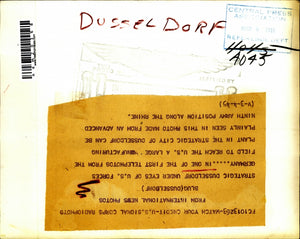 DUSSELDORF
CENTRAL PRESS
ASSOCIATION
REFERENCE DEPT
4043
FROM INTERNATIONAL NEWS PHOTOS
SLUG (DUSSELDORF)
STRATEGIC DUSSELDORF UNDER EYES OF U.S. FORCES
GERMANY.....IN ONE OF THE FIRST TELEPHOTOS FROM THE
FIELD TO REACH THE U.S., A LARGE MANUFACTURING
PLANT IN THE STRATEGIC CITY OF DUSSELDORF CAN BE
PLAINLY SEEN IN THIS PHOTO MADE FROM AN ADVANCED
NINTH ARMY POSITION ALONG THE RHINE.